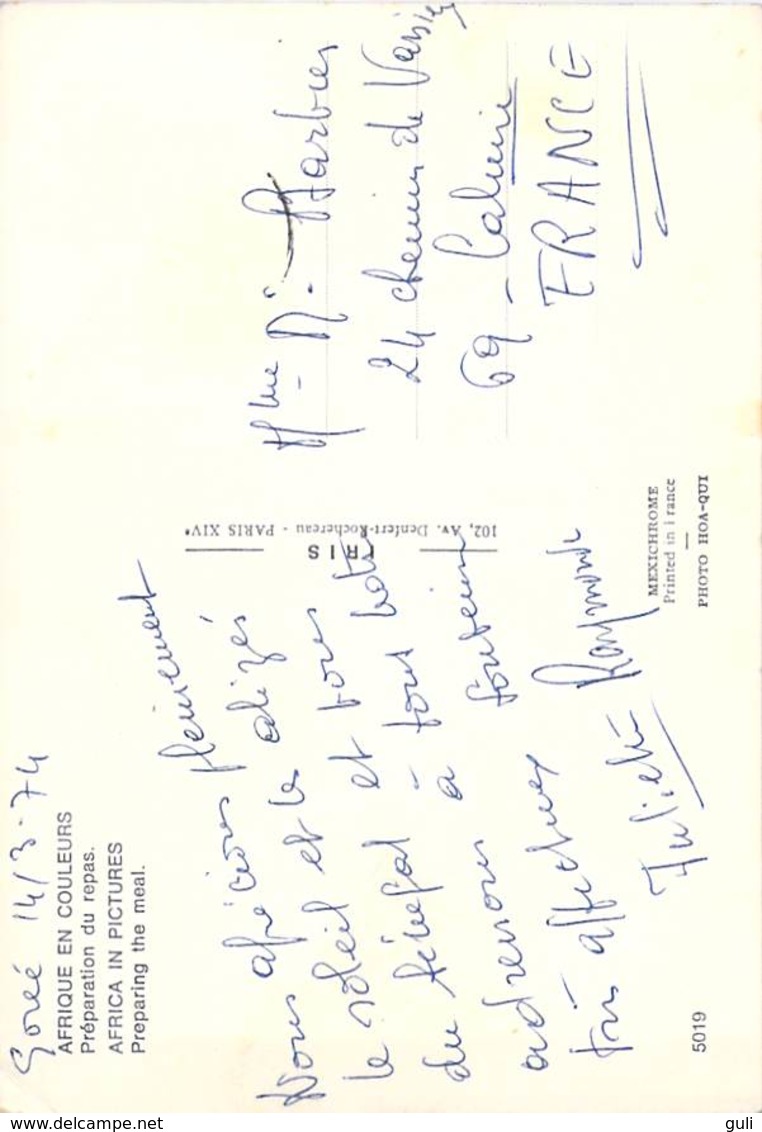 Gorée 14/3-74
AFRIQUE EN COULEURS
Préparation du repas.
AFRICA IN PICTURES
Preparing the meal.
Nous apprécions pleinement
le soleil et les alizés
du Sénégal et vous
adressons à tous votre
très affectueux souvenir
Juliette Raymonde
5019
IRIS
102, Av. Denfert-Rochereau - PARIS XIVe
MEXICHROME
Printed in France
PHOTO HOA-QUI
Mme Barbier
24 chemin de
69 - Caluire
FRANCE
delcampe.net
guli